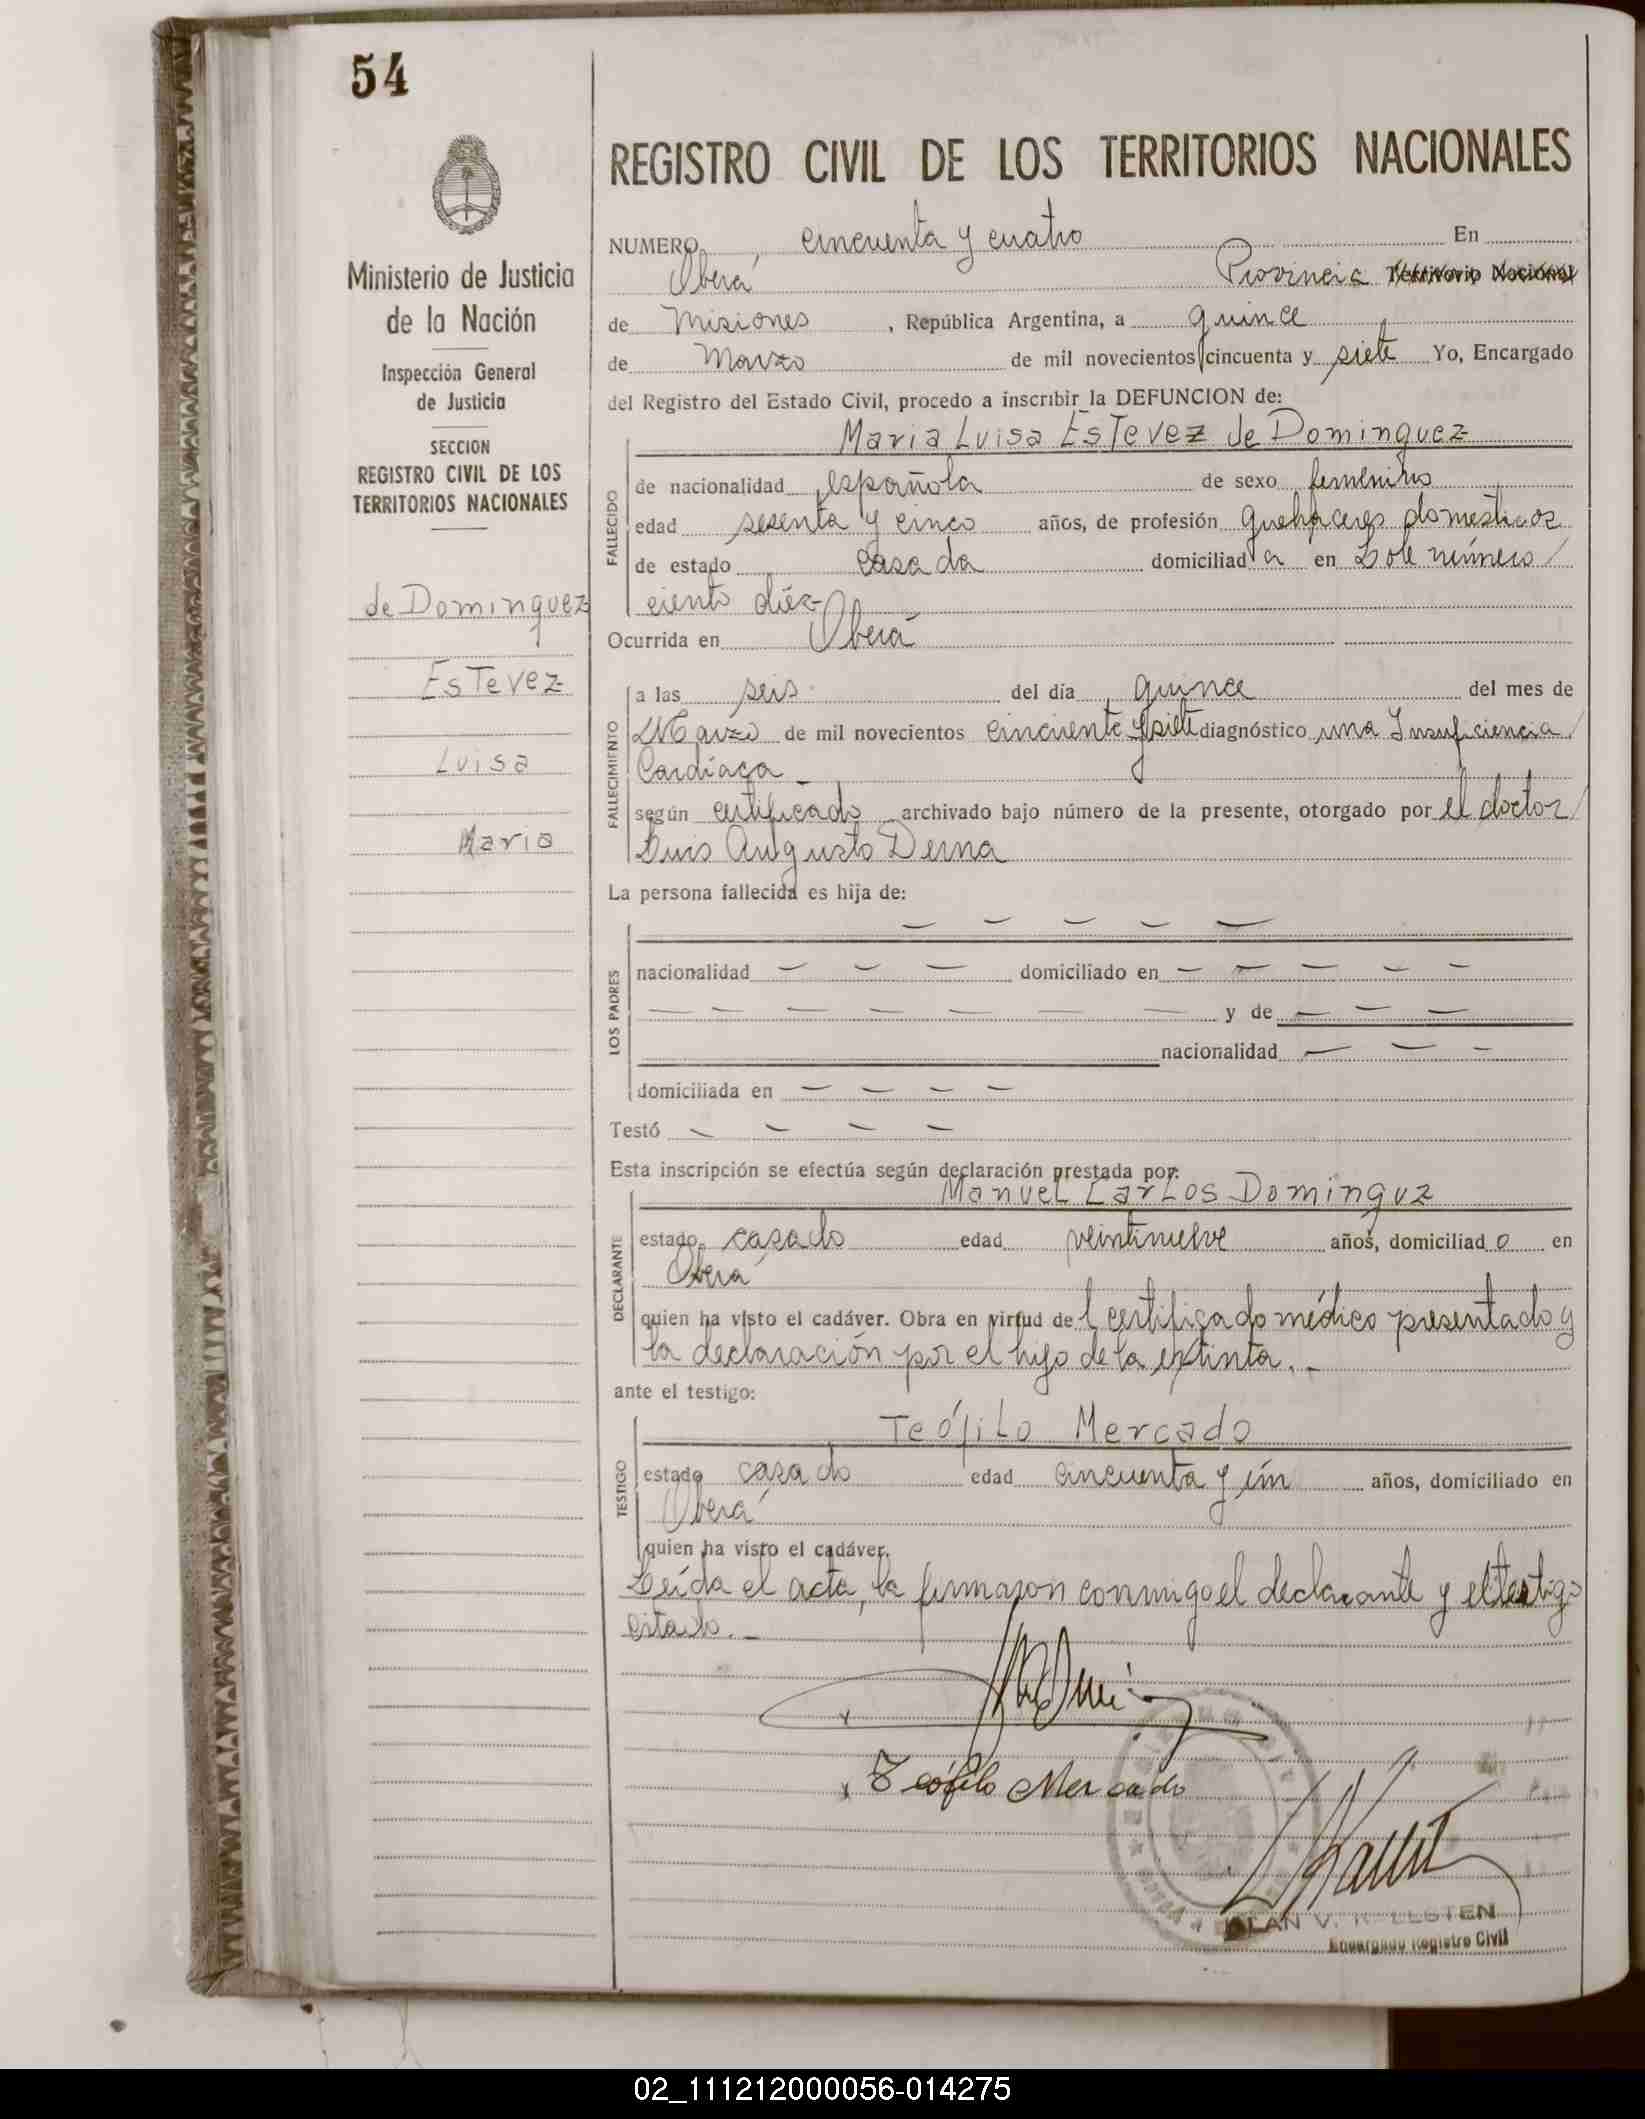 54
REGISTRO CIVIL DE LOS TERRITORIOS NACIONALES
Ministerio de Justicia
de la Nación
Inspección General
de Justicia
SECCION
REGISTRO CIVIL DE LOS
TERRITORIOS NACIONALES
de Dominguez
Estevez
Luisa
Maria
NUMERO cincuenta y cuatro En
Oberá, Provincia Territorio Nacional
de Misiones, República Argentina, a quince
de Marzo de mil novecientos cincuenta y siete Yo, Encargado
del Registro del Estado Civil, procedo a inscribir la DEFUNCION de:
Maria Luisa Estevez de Dominguez
FALLECIDO
de nacionalidad española de sexo femenino
edad sesenta y cinco años, de profesión quehaceres domesticos
de estado casada domiciliad a en Lote número
ciento diéz
Ocurrida en Oberá
FALLECIMIENTO
a las seis del día quince del mes de
Marzo de mil novecientos cincuenta y siete diagnóstico una Insuficiencia
Cardíaca
según certificado archivado bajo número de la presente, otorgado por el doctor
Luis Augusto Derna
La persona fallecida es hija de:
LOS PADRES
nacionalidad domiciliado en
y de
nacionalidad
domiciliada en
Testó
Esta inscripción se efectúa según declaración prestada por:
Manuel Carlos Domínguz
DECLARANTE
estado casado edad veintinueve años, domiciliad o en
Oberá
quien ha visto el cadáver. Obra en virtud de l certificado médico presentado y
la declaración por el hijo de la extinta.-
ante el testigo:
Teófilo Mercado
TESTIGO
estado casado edad cincuenta y ún años, domiciliado en
Oberá
quien ha visto el cadáver.
Leída el acta, la firmaron conmigo el declarante y el testigo
citado.-
Teófilo Mercado
Encargado Registro Civil
02_111212000056-014275